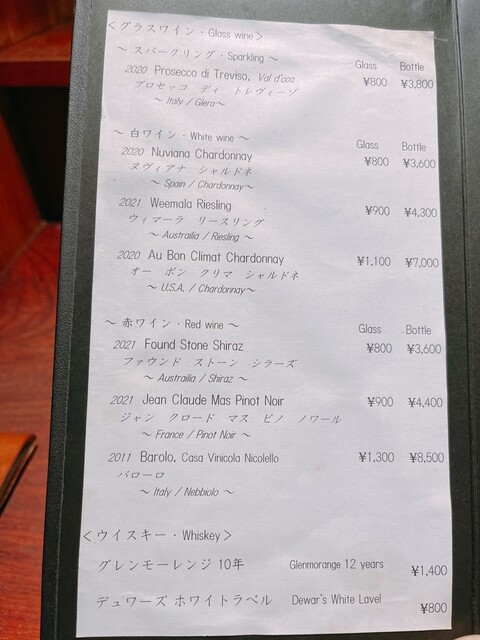 <グラスワイン・Glass wine>
～ スパークリング・Sparkling ～ Glass Bottle
2020 Prosecco di Treviso, Val d'oca ¥800 ¥3,800
プロセッコ ディ トレヴィーゾ
～ Italy / Glera～
～ 白ワイン・White wine ～ Glass Bottle
2020 Nuviana Chardonnay ¥800 ¥3,600
ヌヴィアナ シャルドネ
～ Spain / Chardonnay～
2021 Weemala Riesling ¥900 ¥4,300
ウィマーラ リースリング
～ Austrailia / Riesling ～
2020 Au Bon Climat Chardonnay ¥1,100 ¥7,000
オー ボン クリマ シャルドネ
～ U.S.A. / Chardonnay～
～ 赤ワイン・Red wine ～ Glass Bottle
2021 Found Stone Shiraz ¥800 ¥3,600
ファウンド ストーン シラーズ
～ Austrailia / Shiraz ～
2021 Jean Claude Mas Pinot Noir ¥900 ¥4,400
ジャン クロード マス ピノ ノワール
～ France / Pinot Noir ～
2011 Barolo, Casa Vinicola Nicolello ¥1,300 ¥8,500
バローロ
～ Italy / Nebbiolo ～
<ウイスキー・Whiskey>
グレンモーレンジ 10年 Glenmorange 12 years ¥1,400
デュワーズ ホワイトラベル Dewar's White Lavel ¥800